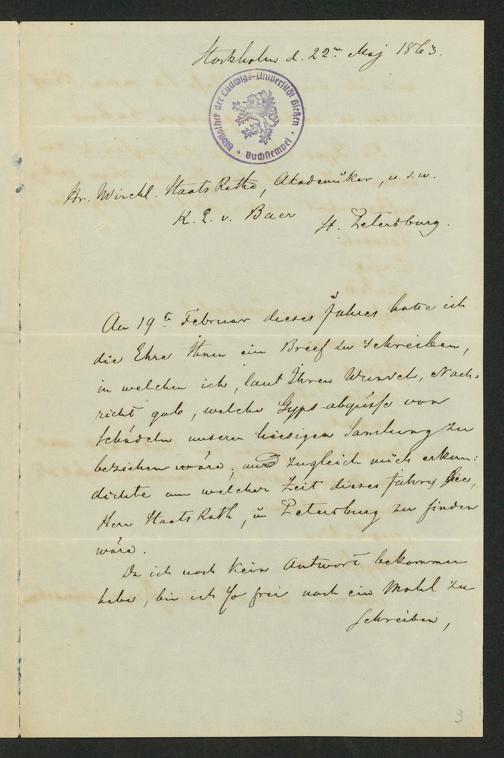 Stockholm d. 22n Maj 1863.
Bibliothek der Ludwigs-Universität Gießen
Buchstempel
Hr. Wirckl. StaatsRathe, Akademiker, u. s. w.
K. E. v. Baer
St. Petersburg.
Am 19t Februar dieses Jahres hatte ich
die Ehre Ihnen ein Brief zu schreiben,
in welchen ich, laut Ihren Wunsch, Nach-
richt gab, welche Gyps-abgüsse von
Schädeln unserer hiesigen Samlung zu
beziehen wäre; und zugleich mich erkun:
dichte um welcher Zeit dieses Jahres Sie,
Herr StaatsRath, in Petersburg zu finden
wäre.
Da ich noch kein Antwort bekommen
habe, bin ich so frei noch ein Mahl zu
schreiben,
9